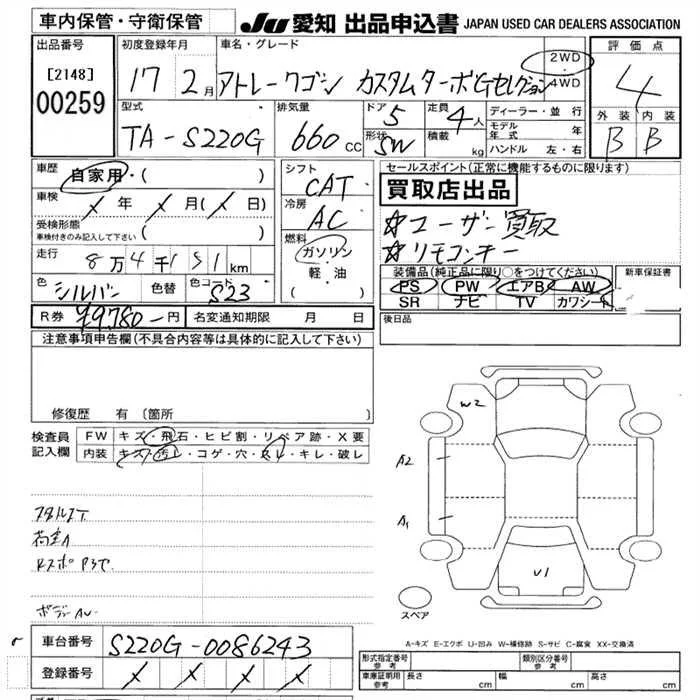 車内保管・守衛保管
JU 愛知 出品申込書 JAPAN USED CAR DEALERS ASSOCIATION
出品番号
[2148]
00259
初度登録年月
17 2月
車名・グレード
アトレーワゴン カスタムターボGセレクション
2WD・4WD
評価点
4
外装 内装
B B
型式
TA-S220G
排気量
660cc
ドア
5
形状
SW
定員
4人
積載 kg
ディーラー・並行
モデル年式 年
ハンドル 左・右
車歴
自家用・( )
車検
× 年 × 月(× 日)
受検形態
車検付きのみ記入して下さい ( )
走行
8万4千151km
色
シルバー
色替
色コード
S23
シフト
CAT
冷房
AC
燃料
ガソリン
軽・油
セールスポイント(正常に機能するものに限ります)
買取店出品
☆ユーザー買取
☆リモコンキー
装備品(純正品に限り○をつけてください)
新車保証書
PS PW エアB AW
SR ナビ TV カワシート
R券 ¥9780-円 名変通知期限 月 日
後日品
注意事項申告欄(不具合内容等は具体的に記入して下さい)
修復歴 有 〔箇所 〕
検査員記入欄
FW キズ・飛石・ヒビ割・リペア跡・X要
内装 キズ・汚レ・コゲ・穴・スレ・キレ・破レ
W2
A2
A1
U1
スペア
A-キズ E-エクボ U-凹み W-補修跡 S-サビ C-腐食 XX-交換済
車台番号 S220G-0086243
登録番号 × × × ×
形式指定番号
参考
類別区分番号
参考
車庫証明用
参考
長さ cm 幅 cm 高さ cm